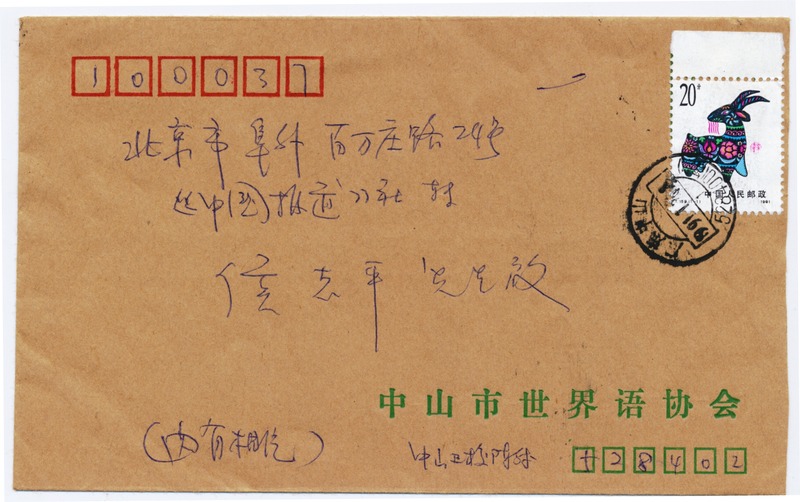 100037
20分
北京市阜外百万庄路24号
《中国报道》杂志社
中国人民邮政
侯志平 先生启
中山市世界语协会
(内有相片)
中山卫校陈
528402